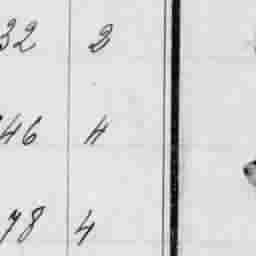 32 3
46 4
78 4